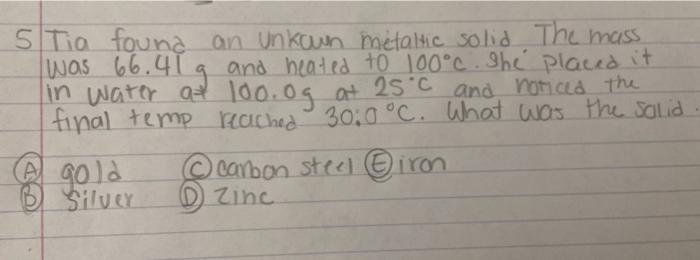 5 Tia found an unkown metallic solid. The mass
was 66.41 g and heated to 100°C. She placed it
in water at 100.0g at 25°C and noticed the
final temp reached 30.0°C. What was the solid.
A gold C carbon steel E iron
B Silver D Zinc